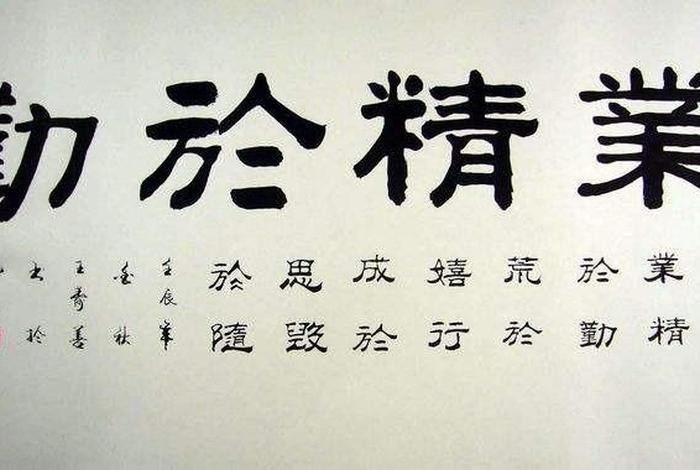 業精於勤
業精
於勤
荒於
嬉行
成於
思毀
於隨
壬辰年
金秋
王壽善
書於